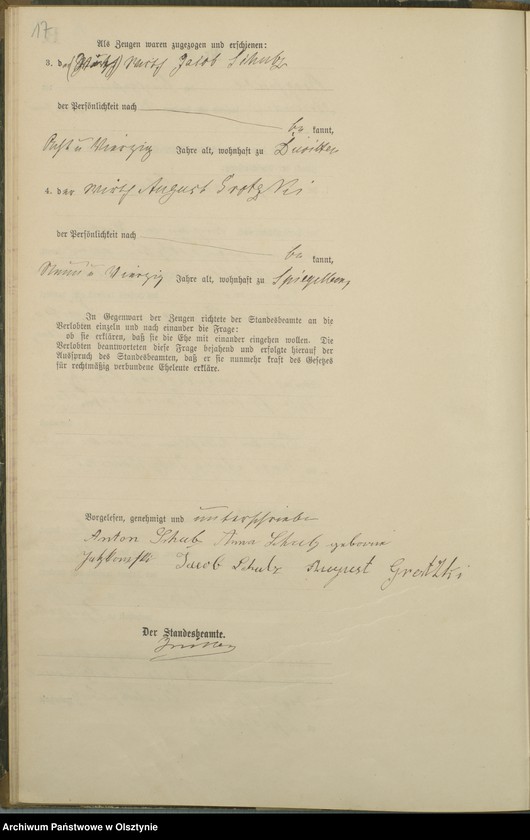 17
Als Zeugen waren zugezogen und erschienen:
3. der Wirth Jacob Schulz
der Persönlichkeit nach
be kannt,
Acht u Vierzig Jahre alt, wohnhaft zu
4. der Wirth August Grotzki
der Persönlichkeit nach
be kannt,
Neun u Vierzig Jahre alt, wohnhaft zu Spiegelberg
In Gegenwart der Zeugen richtete der Standesbeamte an die
Verlobten einzeln und nach einander die Frage:
ob sie erklären, daß sie die Ehe mit einander eingehen wollen. Die
Verlobten beantworteten diese Frage bejahend und erfolgte hierauf der
Ausspruch des Standesbeamten, daß er sie nunmehr kraft des Gesetzes
für rechtmäßig verbundene Eheleute erkläre.
Vorgelesen, genehmigt und unterschrieben
Anton Schulz Anna Schulz geborne
Jacob Schulz August Grotzki
Der Standesbeamte.
Archiwum Państwowe w Olsztynie